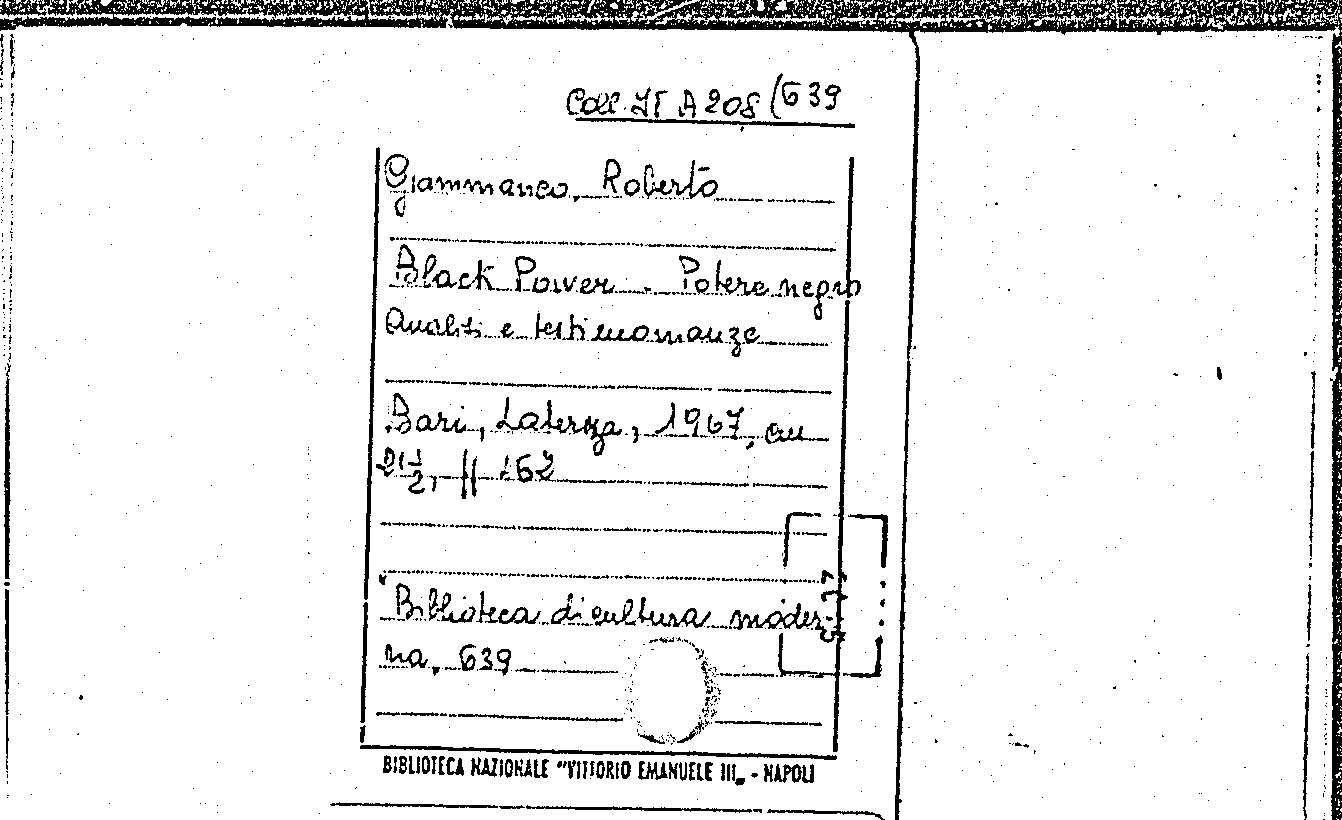 Coll. IT A 208 (639
Giammanco, Roberto
Black Power. Potere negro
Analisi e testimonianze
Bari, Laterza, 1967, cm
21 1/2, pp 462
"Biblioteca di cultura moder-
na, 639
BIBLIOTECA NAZIONALE "VITTORIO EMANUELE III„ - NAPOLI